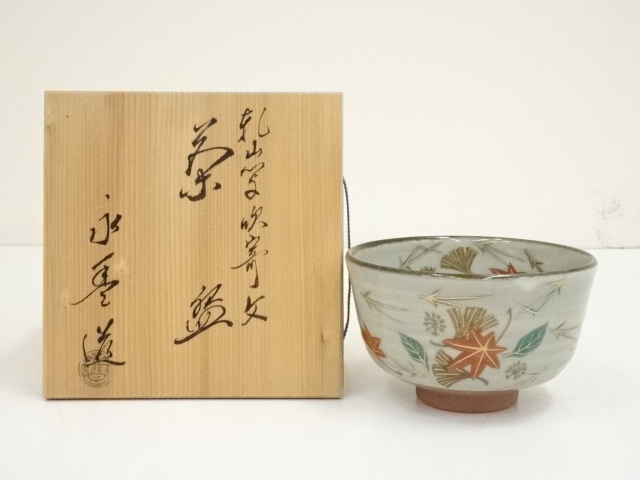 乾山写吹寄文
茶盌
永豊造